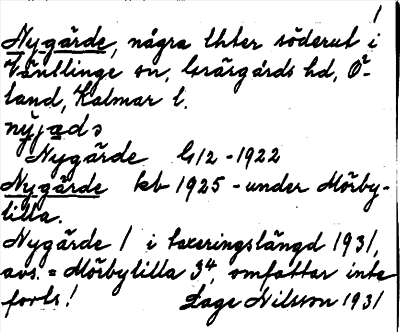 1
Nygärde, några lhter söderut i
Ventlinge sn, Gräsgårds hd, Ö-
land, Kalmar l.
nyjads
Nygärde G12-1922
Nygärde kb 1925 - under Mörby-
lilla.
Nygärde 1 i taxeringslängd 1931,
avs. = Mörbylilla 3⁴, omfattar inte
forts! Lage Nilsson 1931